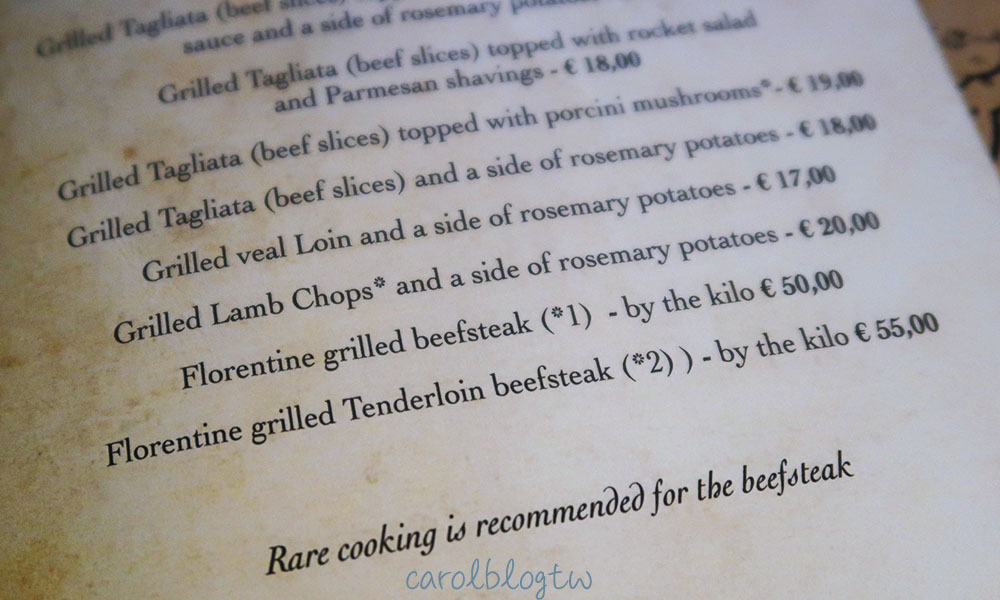 Grilled Tagliata (beef slices)
sauce and a side of rosemary potatoes
Grilled Tagliata (beef slices) topped with rocket salad
and Parmesan shavings - € 18,00
Grilled Tagliata (beef slices) topped with porcini mushrooms* - € 19,00
Grilled Tagliata (beef slices) and a side of rosemary potatoes - € 18,00
Grilled veal Loin and a side of rosemary potatoes - € 17,00
Grilled Lamb Chops* and a side of rosemary potatoes - € 20,00
Florentine grilled beefsteak (*1) - by the kilo € 50,00
Florentine grilled Tenderloin beefsteak (*2) ) - by the kilo € 55,00
Rare cooking is recommended for the beefsteak
carolblogtw